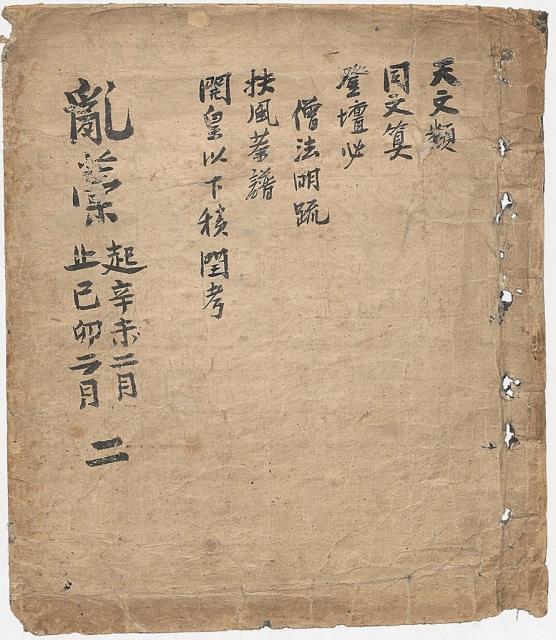 天文類
同文算
登壇必
僧法明䟽
扶風荼譜
開皇以下積閏考
亂藁
起辛未二月
止己卯二月
二